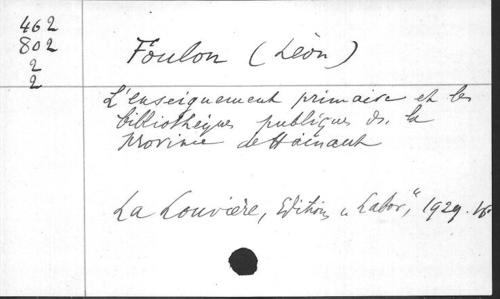 462
802
2
2
Foulon (Léon)
L'enseignement primaire et les
bibliothèques publiques ds. la
Province de Hainaut
La Louvière, Editions "Labor", 1929.